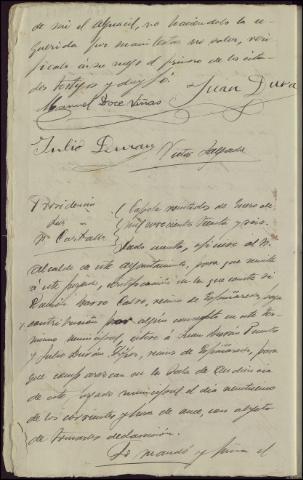 de mi el Alguacil, no haciéndolo la re-
querida por manifestar no saber, veri-
ficalo á su ruego el primero de los cita-
dos testigos y doy fé.
Manuel Doce Viñas Juan Dura
Julio Duran
Victor Salgado
Providencia
Juez
Sr. Carballo
Capela veintidos de Enero de
mil novecientos treinta y seis.
Dado cuenta, oficiese al Sr.
Alcalde de este Ayuntamiento, para que remita
á este Juzgado, certificación en la que conste si
Ramón Castro, vecino de Espiñaredo, paga
contribución por algún concepto en este tér-
mino municipal, citese á Juan Durán
y Julio Durán, vecinos de Espiñaredo, para
que comparezcan en la Sala de Audiencia
de este Juzgado municipal el dia veintinueve
de los corrientes y hora de once, con objeto
de tomarles declaración.
Lo mandó y firma el